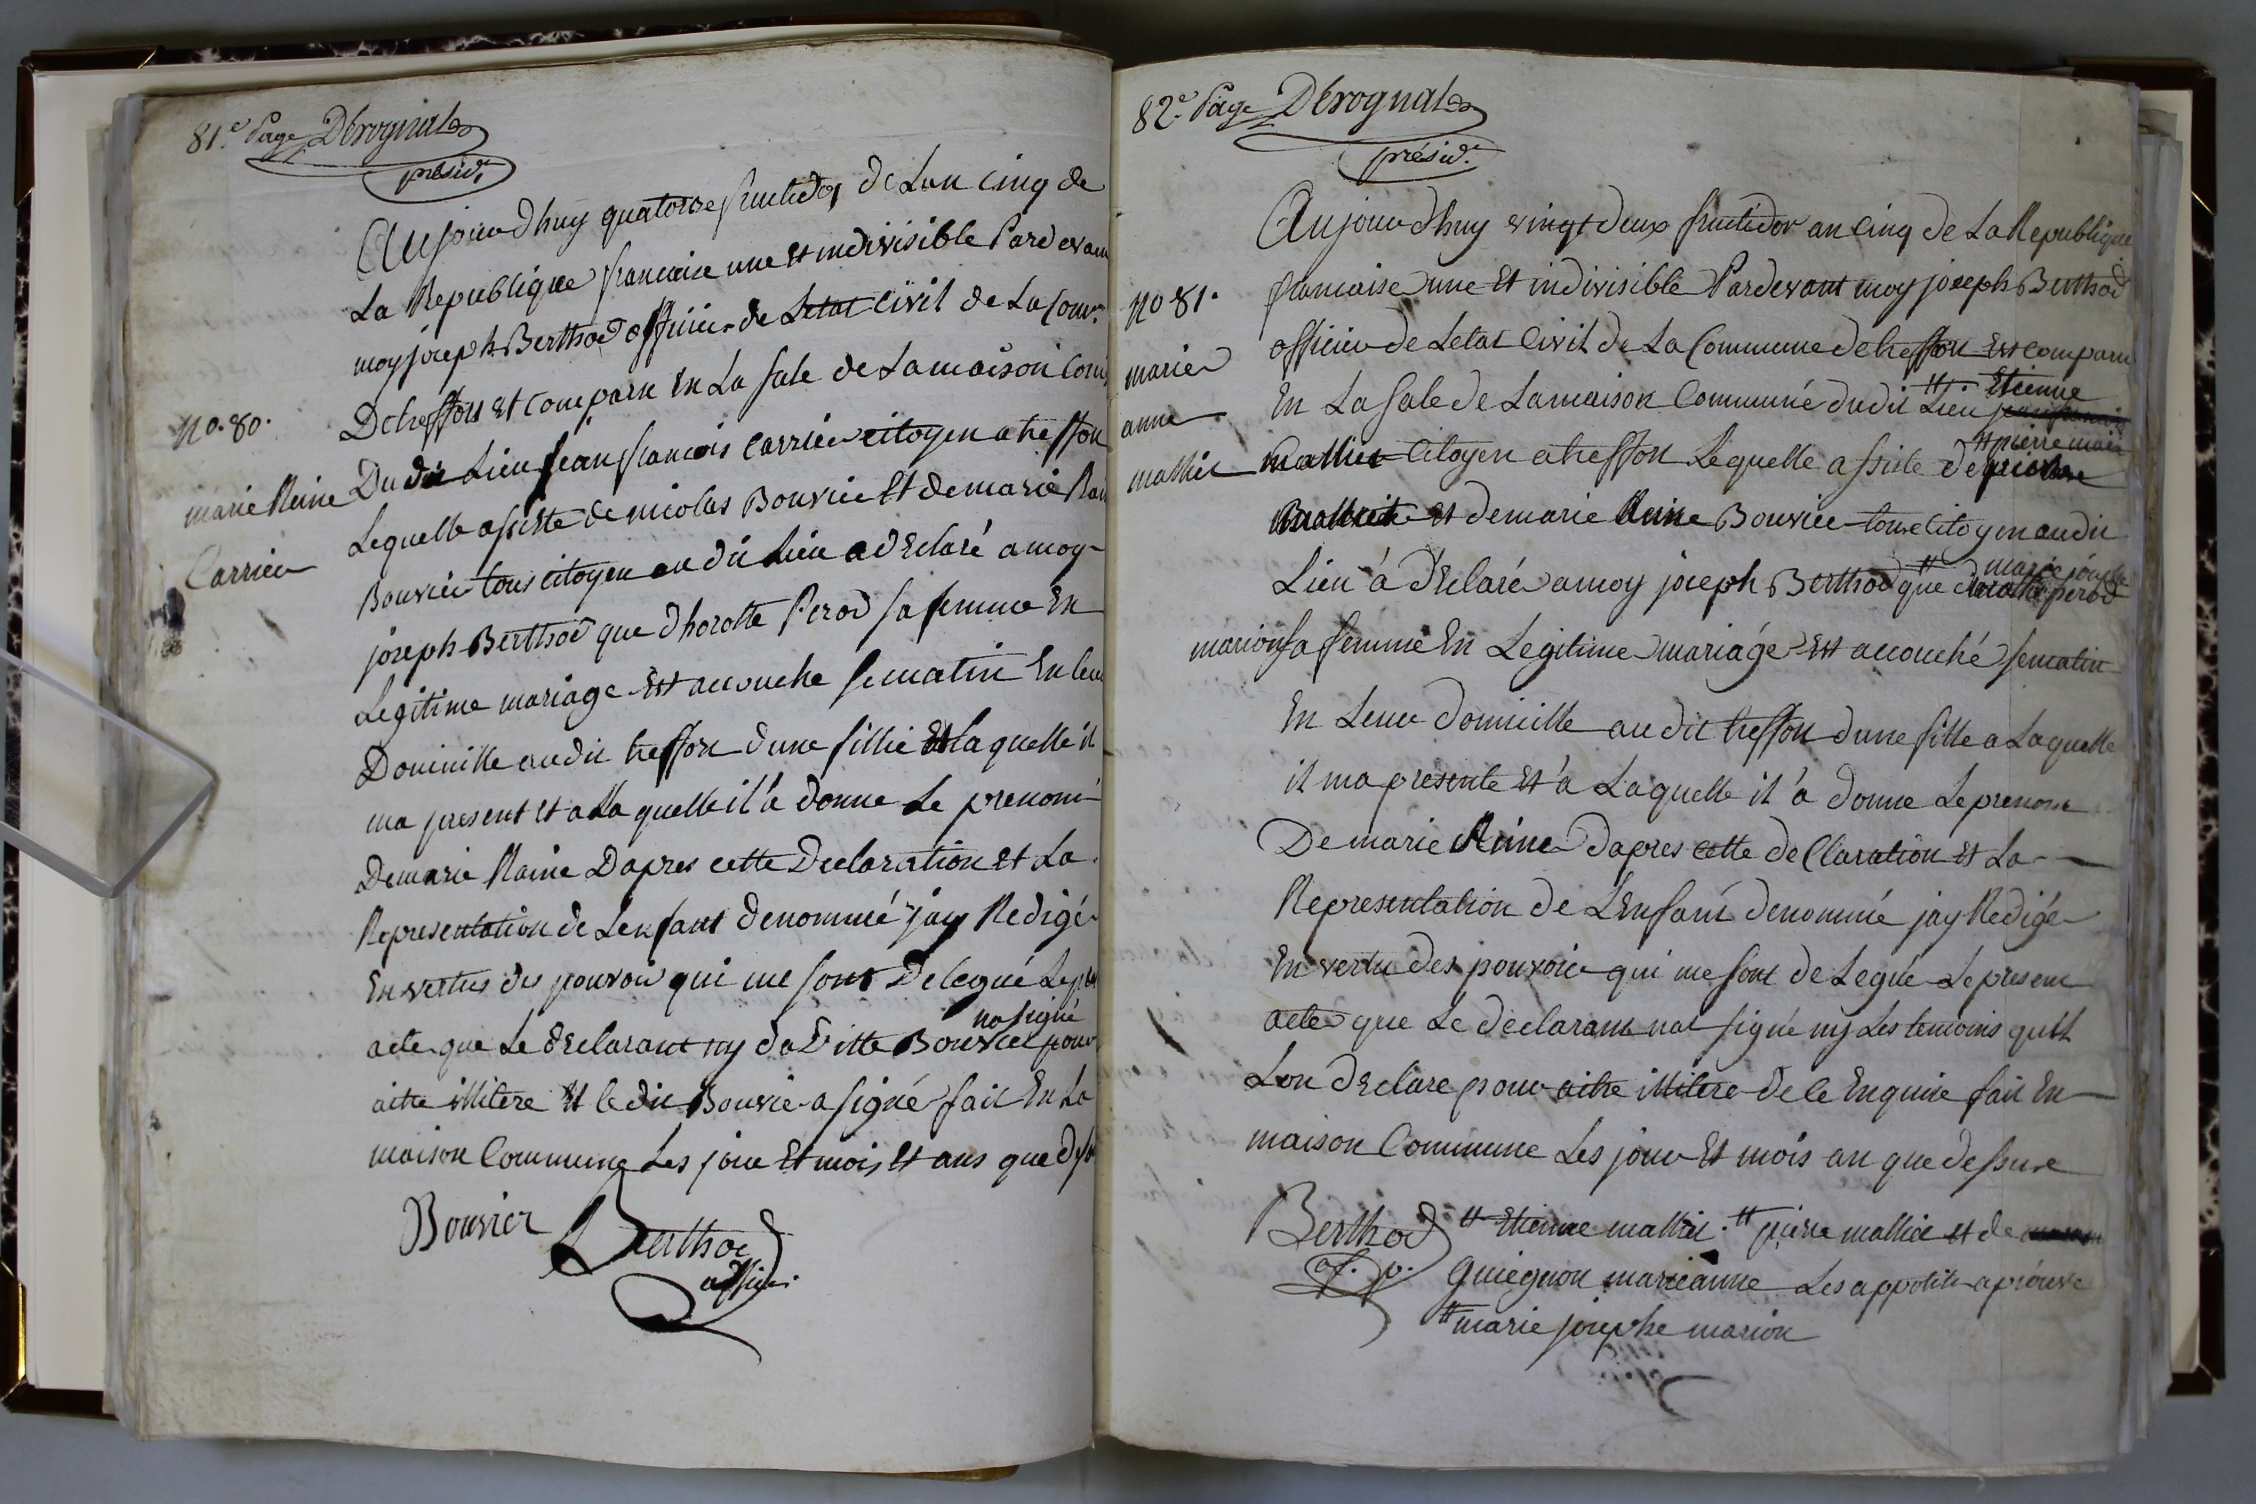 81.e Page Dérognat
présid.t
Aujourdhuy quatorse fructidor de Lan cinq de
La Republique francaise une Et indivisible Pardevant
moy joseph Berthod officier de Letat Civil de La Com.
De treffort Et comparu En La sale de La maison Com
No. 80.
Du dit Lieu jean francois Carrier citoyen a treffort
marie Reine
Lequelle assiste de nicolas Bouvier Et de marie Rai
Carrier
Bouvier tous citoyen au dit Lieu a dEclaré a moy
joseph Berthod que dhorotte Perod sa femme En
Legitime mariage Est accouche se matin En leur
Domicille au dit treffort dune fillie Et la quelle il
ma present Et a La quelle il'a donne Le prenom
De marie Raine Dapres cette Declaration Et La
Representation de Lenfant denommé jay Redigé
En vertus des pouvoir qui me sont Delegué Le pre
na signé
acte que Le dEclarant ny da Ditte Bouvier pour
aitre illitere Et le dit Bouvier a signé fait En La
maison Commune Les jour Et mois Et ans que dess
Bouvier Berthod
officier
82.e Page Dérognat
présid.t
Aujourdhuy vingt deux fructidor an cinq de La Republique
No 81.
francaise une Et indivisible Pardevant moy joseph Berthod
officier de Letat Civil de La Commune de treffort Est comparu
marie
tt. Etienne
En La sale de La maison Commune du dit Lieu
anne
tt pierre
mallict
mallict Citoyen a treffort Lequelle assiste de
Et de marie Reine Bouvier tous Citoyen au dit
tt marie joseph
Lieu à dEclaré a moy joseph Berthod que perod
marion sa femme En Legitime mariage Est accouché se matin
En Leur domicille au dit treffort dune fille a Laquelle
il ma presente Et a Laquelle il'a donne Le prenom
De marie Reine dapres cette de Claration Et La
Representation de LEnfant denommé jay Redigé
En vertu des pouvoir qui me sont de Legué Le present
acte que Le declarant nat signé ny Les temoins quil
Lon dEclare pour aitre illitere de le Enquire fait En
maison Commune Les jour Et mois an que dessure
Berthod tt Etienne mallict. tt pierre mallict Et de
of. p. Guiegnon marieanne Les appotile apróuve
tt marie josephe marion